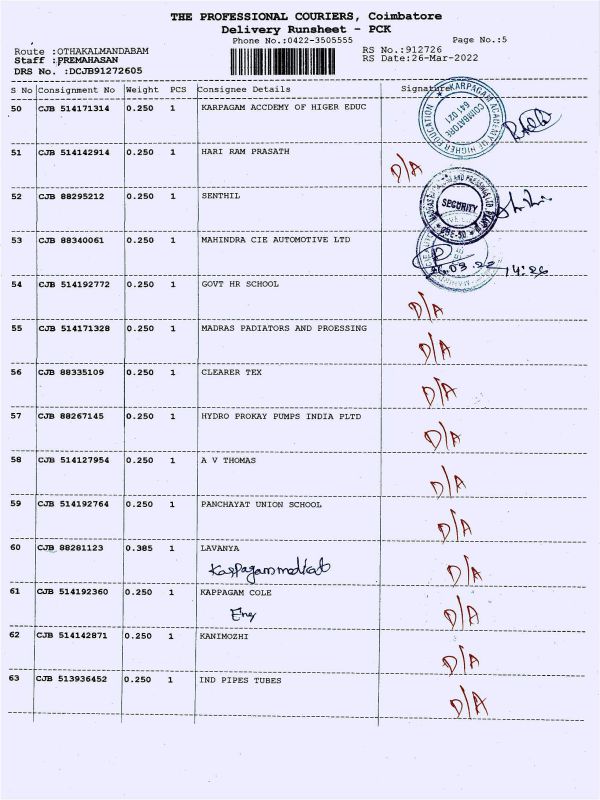 THE PROFESSIONAL COURIERS, Coimbatore
Delivery Runsheet - PCK
Phone No.:0422-3505555
Page No.:5
Route :OTHAKALMANDABAM
RS No.:912726
Staff :PREMAHASAN
RS Date:26-Mar-2022
DRS No. :DCJB91272605
S No Consignment No Weight PCS Consignee Details Signature
50 CJB 514171314 0.250 1 KARPAGAM ACCDEMY OF HIGER EDUC
KARPAGAM ACADEMY OF HIGHER EDUCATION
COIMBATORE
641 021
51 CJB 514142914 0.250 1 HARI RAM PRASATH D/A
52 CJB 88295212 0.250 1 SENTHIL
SECURITY
53 CJB 88340061 0.250 1 MAHINDRA CIE AUTOMOTIVE LTD
14:26
54 CJB 514192772 0.250 1 GOVT HR SCHOOL D/A
55 CJB 514171328 0.250 1 MADRAS PADIATORS AND PROESSING D/A
56 CJB 88335109 0.250 1 CLEARER TEX D/A
57 CJB 88267145 0.250 1 HYDRO PROKAY PUMPS INDIA PLTD D/A
58 CJB 514127954 0.250 1 A V THOMAS D/A
59 CJB 514192764 0.250 1 PANCHAYAT UNION SCHOOL D/A
60 CJB 88281123 0.385 1 LAVANYA D/A
61 CJB 514192360 0.250 1 KAPPAGAM COLE D/A
Eng
62 CJB 514142871 0.250 1 KANIMOZHI D/A
63 CJB 513936452 0.250 1 IND PIPES TUBES D/A